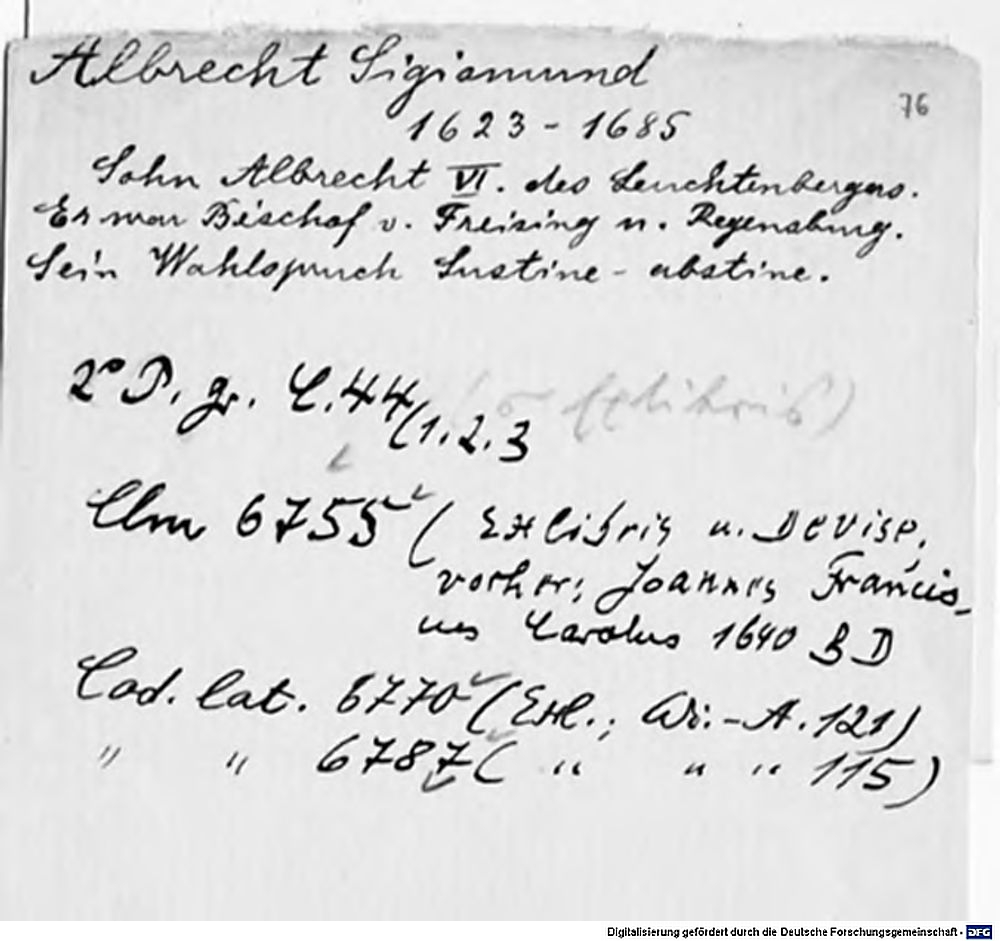 Albrecht Sigismund
76
1623 - 1685
Sohn Albrecht VI. des Leuchtenbergers.
Er war Bischof v. Freising u. Regensburg.
Sein Wahlspruch Sustine - abstine.
2° P. gr. C. 44/1.2.3 ( Exlibris)
Clm 6755 ( Exlibris u. Devise,
vorher: Joannes Francis-
cus Carolus 1640 B D
Cod. lat. 6770 (Exl.; Wi.-A. 121)
" " 6787 ( " " " 115)
Digitalisierung gefördert durch die Deutsche Forschungsgemeinschaft - DFG